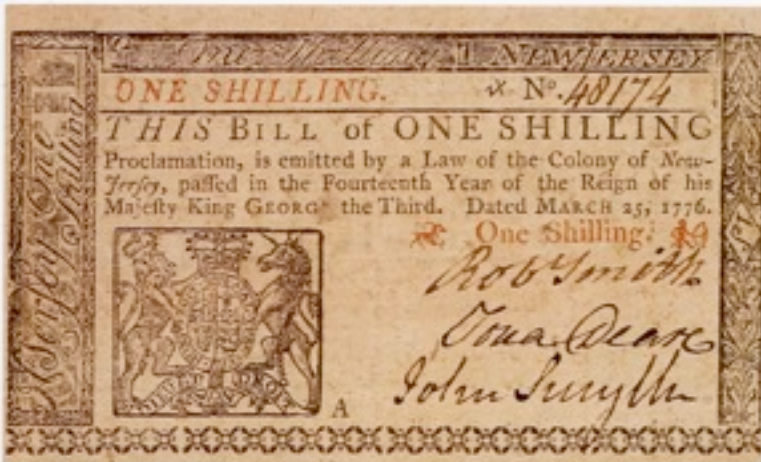 One Shilling NEW JERSEY
ONE SHILLING. No. 48174
THIS BILL of ONE SHILLING
Proclamation, is emitted by a Law of the Colony of New-
Jersey, passed in the Fourteenth Year of the Reign of his
Majesty King GEORGE the Third. Dated MARCH 25, 1776.
One Shilling.
Robt Smith
Jona. Deare
John Smyth
A
Jersey One
Shilling